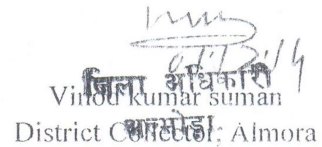 जिला अधिकारी
Vinod kumar suman
अल्मोड़ा
District Collector, Almora